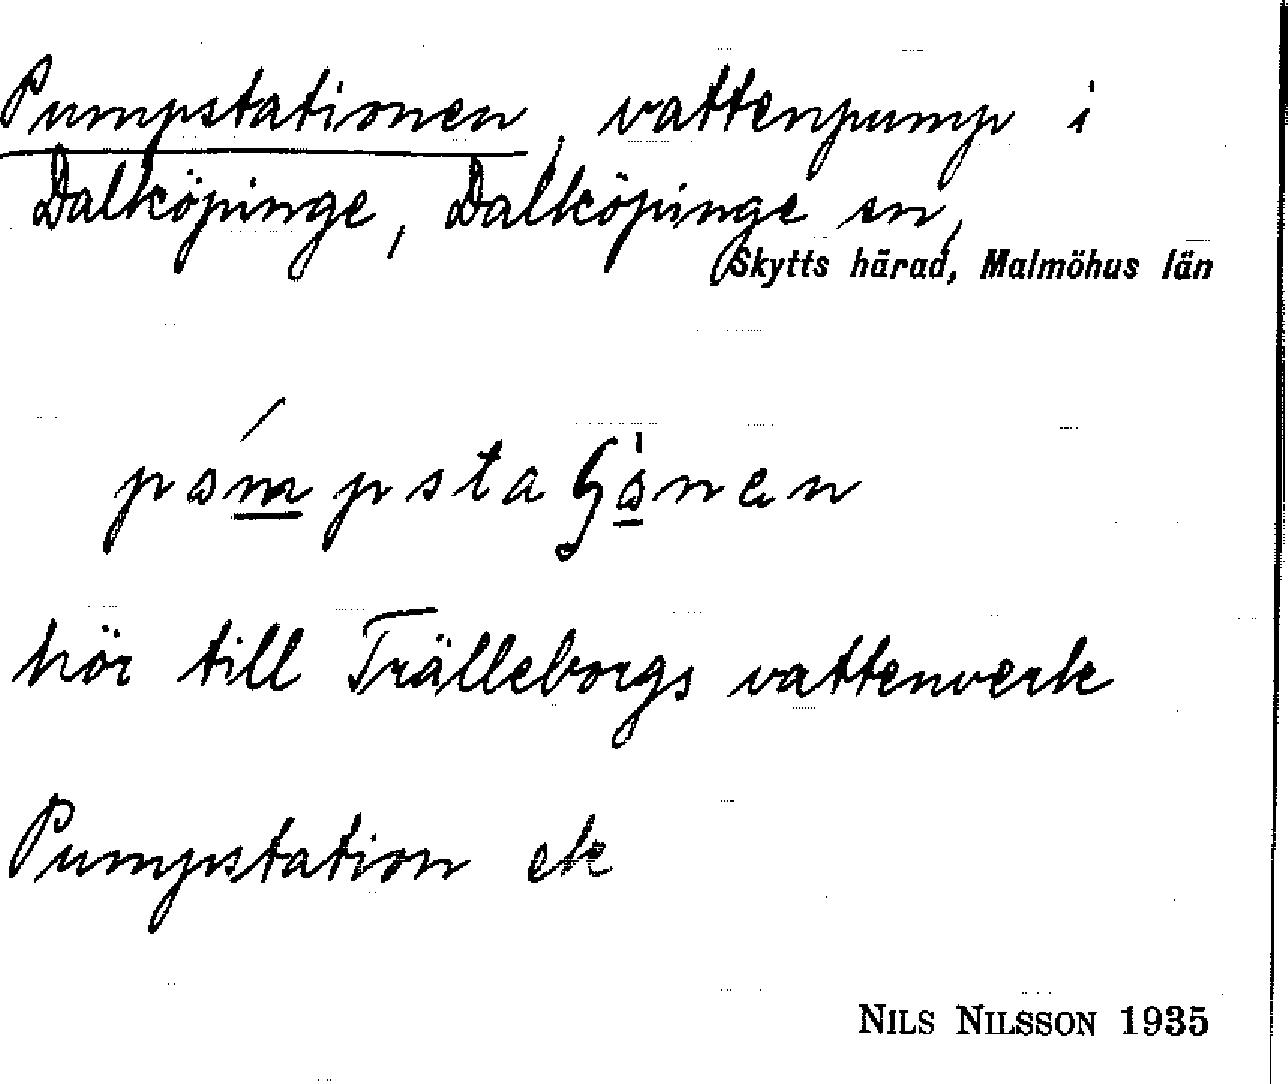 Pumpstationen, vattenpump i
Dalköpinge, Dalköpinge sn,
Skytts härad, Malmöhus län
hör till Trälleborgs vattenverk
Pumpstation ek
NILS NILSSON 1935